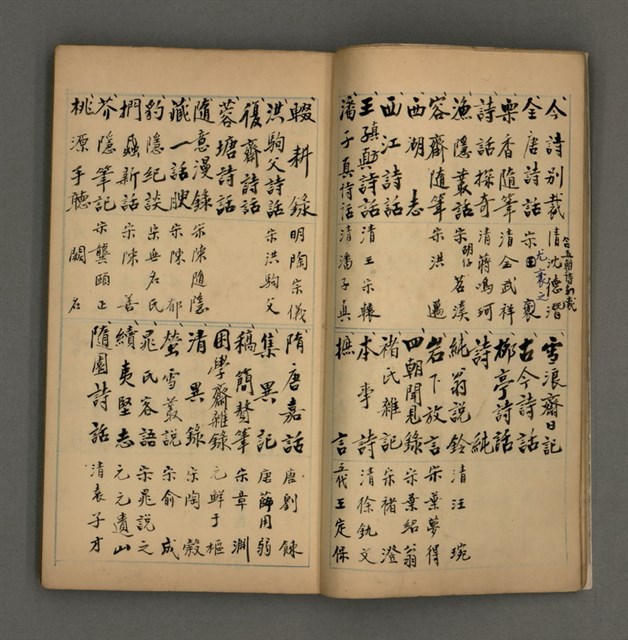 今詩別裁 清沈德潛
全唐詩話 宋
尤袤之
栗香隨筆 清金武祥
詩話探奇 清蔣鳴珂
漁隱叢話 宋胡仔 苕溪
容齋隨筆 宋洪邁
西湖志
西江詩話
王禛詩話 清王宗轅
潘子真詩話 清潘子真
雪浪齋日記
古今詩話
柳亭詩話
詩純
純翁說鈴 清汪琬
岩下放言 宋葉夢得
四朝聞見錄 宋葉紹翁
褚氏雜記 宋褚澄
本事詩 清徐釚文
摭言 五代王定保
輟耕錄 明陶宗儀
洪駒父詩話 宋洪駒父
復齋詩話
蓉塘詩話
隨意漫錄 宋陳隨隱
藏一話腴 宋陳郁
豹隱紀談 宋無名氏
捫蝨新話 宋陳善
芥隱筆記 宋龔頤正
桃源手聽 闕名
隋唐嘉話 唐劉餗
集異記 唐薛用弱
稿簡贅筆 宋章淵
困學齋雜錄 元鮮于樞
清異錄 宋陶穀
螢雪叢說 宋俞成
晁氏客語 宋晁說之
續夷堅志 元元遺山
隨園詩話 清袁子才